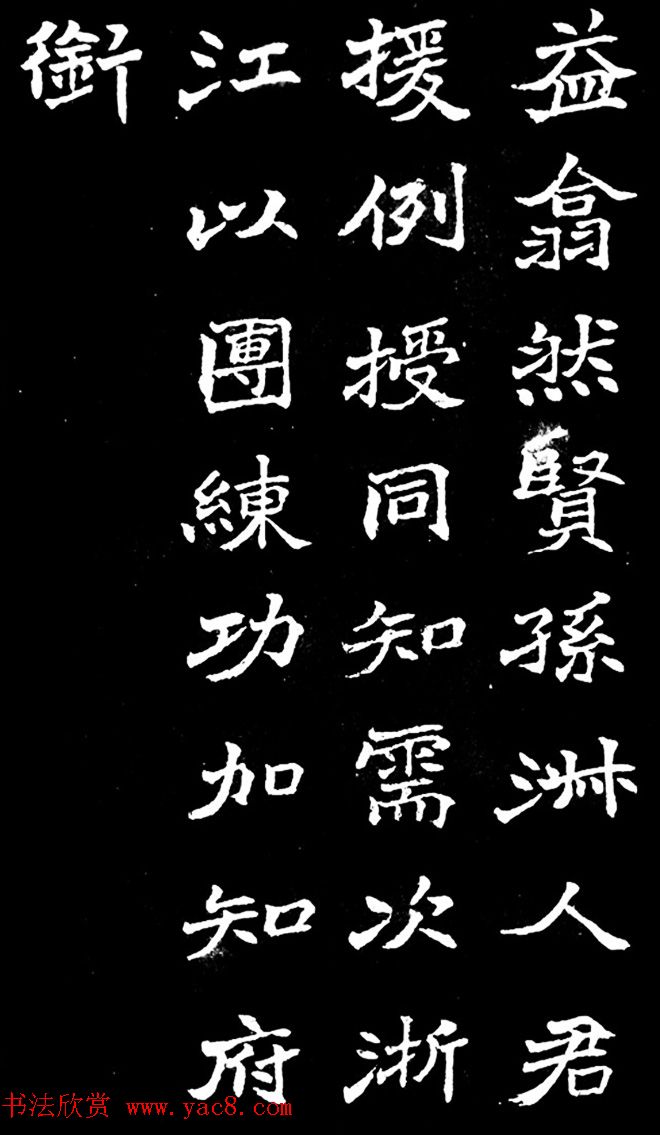 益翕然賢孫淋人君
援例授同知需次浙
江以團練功加知府
銜
书法欣赏 www.yac8.com